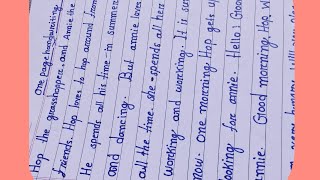 One page handwriting
Hop the grasshopper. and Annie the
friends. Hop loves to hop around from
He spends all his time in summer
and dancing. But annie loves
all the time. She spends all her
working and working. It is sum
now. One morning, Hop gets up
ooking for annie. Hello! Good
nnie. Good morning, Hop. W